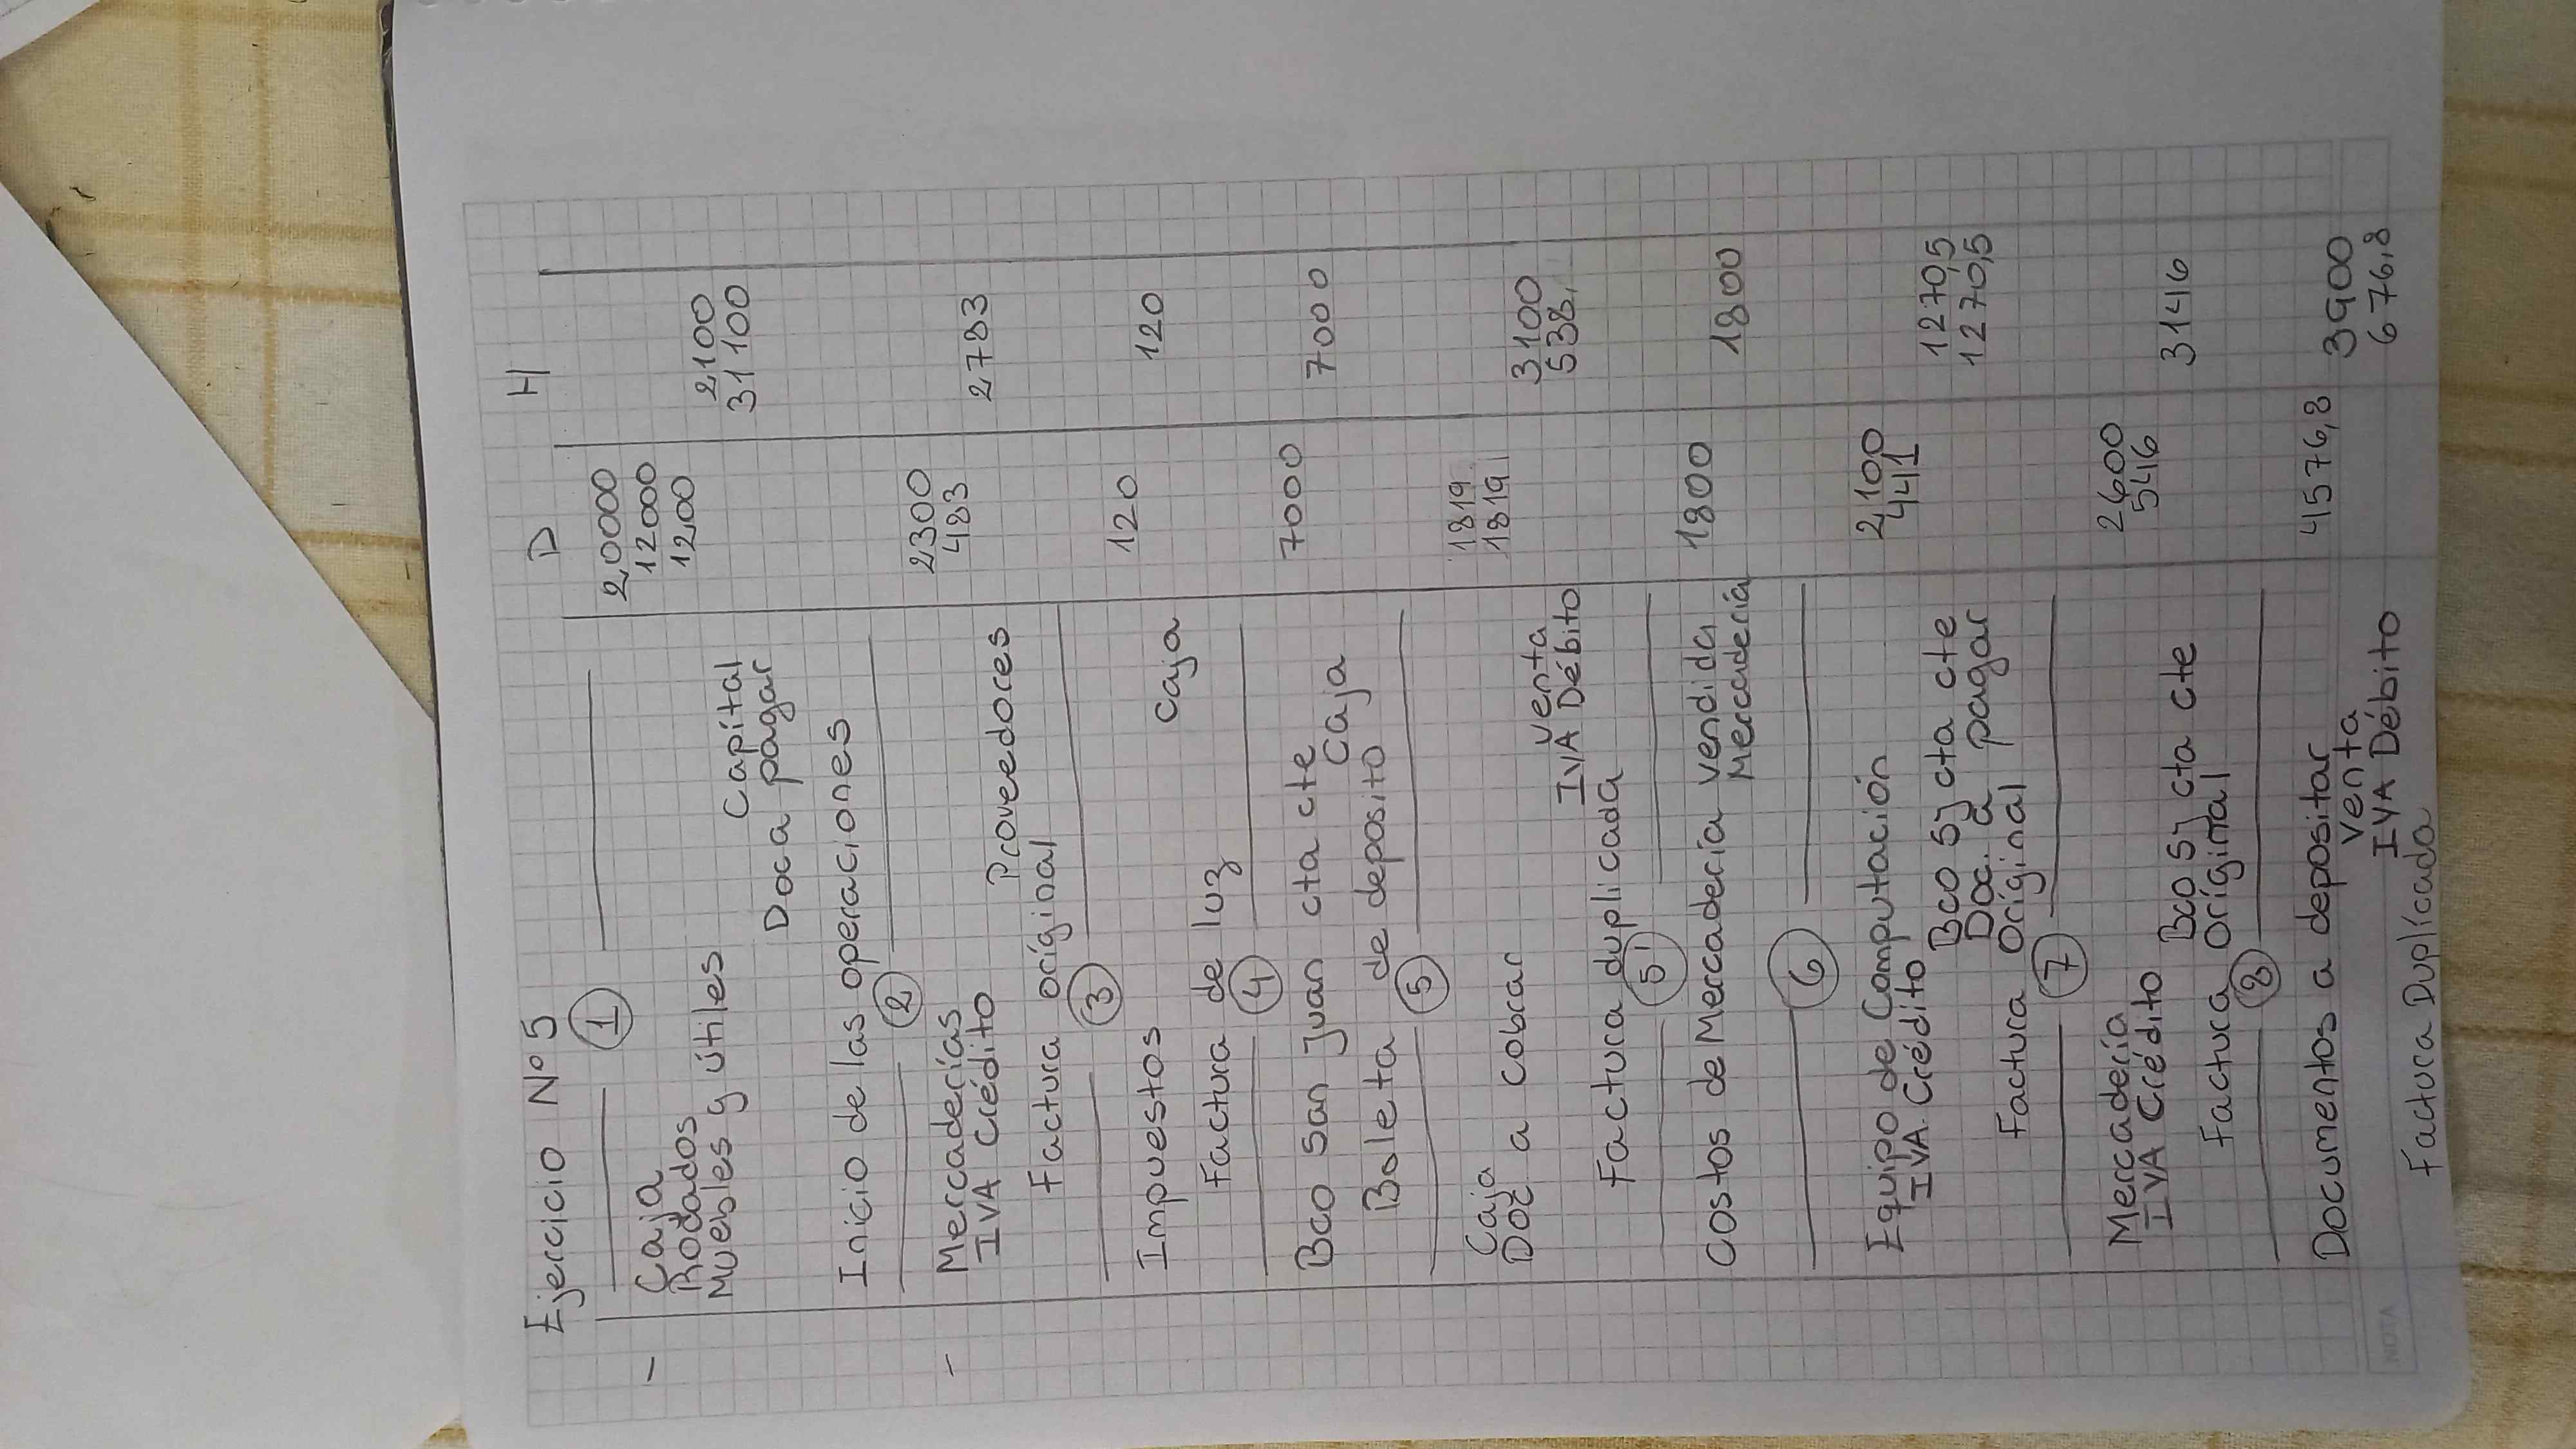 Ejercicio Nº 5
D H
1
- Caja 20000
Rodados 12000
Muebles y útiles 1200
Capital 2100
Doc a pagar 31100
Inicio de las operaciones
2
- Mercaderías 2300
IVA Crédito 483
Proveedores 2783
Factura original
3
Impuestos 120
Caja 120
Factura de luz
4
Bco San Juan cta cte 7000
Caja 7000
Boleta de deposito
5
Caja 1819
Doc a cobrar 1819
Venta 3100
IVA Débito 538,
Factura duplicada
5'
Costos de Mercadería vendida 1800
Mercadería 1800
6
Equipo de Computación 2100
IVA Crédito 441
Bco SJ cta cte 1270,5
Doc. a pagar 1270,5
Factura original
7
Mercadería 2600
IVA Crédito 546
Bco SJ cta cte 3146
Factura original
8
Documentos a depositar 4576,8
Venta 3900
IVA Débito 676,8
Factura Duplicada
NOTA